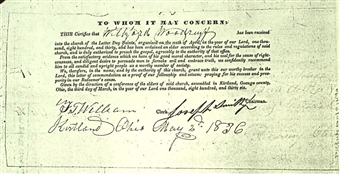 TO WHOM IT MAY CONCERN:
THIS Certifies that Willford Woodruff has been received
into the church of the Latter Day Saints, organized on the sixth of April, in the year of our Lord, one thou-
sand, eight hundred, and thirty, and has been ordained an elder according to the rules and regulations of said
church, and is duly authorized to preach the gospel, agreeably to the authority of that office.
From the satisfactory evidence which we have of his good moral character, and his zeal for the cause of right-
eousness, and diligent desire to persuade men to forsake evil and embrace truth, we confidently recommend
him to all candid and upright people as a worthy member of society.
We, therefore, in the name, and by the authority of this church, grant unto this our worthy brother in the
Lord, this letter of commendation as a proof of our fellowship and esteem: praying for his success and pros-
perity in our Redeemer's cause.
Given by the direction of a conference of the elders of said church, assembled in Kirtland, Geauga county,
Ohio, the third day of March, in the year of our Lord one thousand, eight hundred, and thirty six.
Clerk. Joseph Smith
Kirtland Ohio May 2d 1836